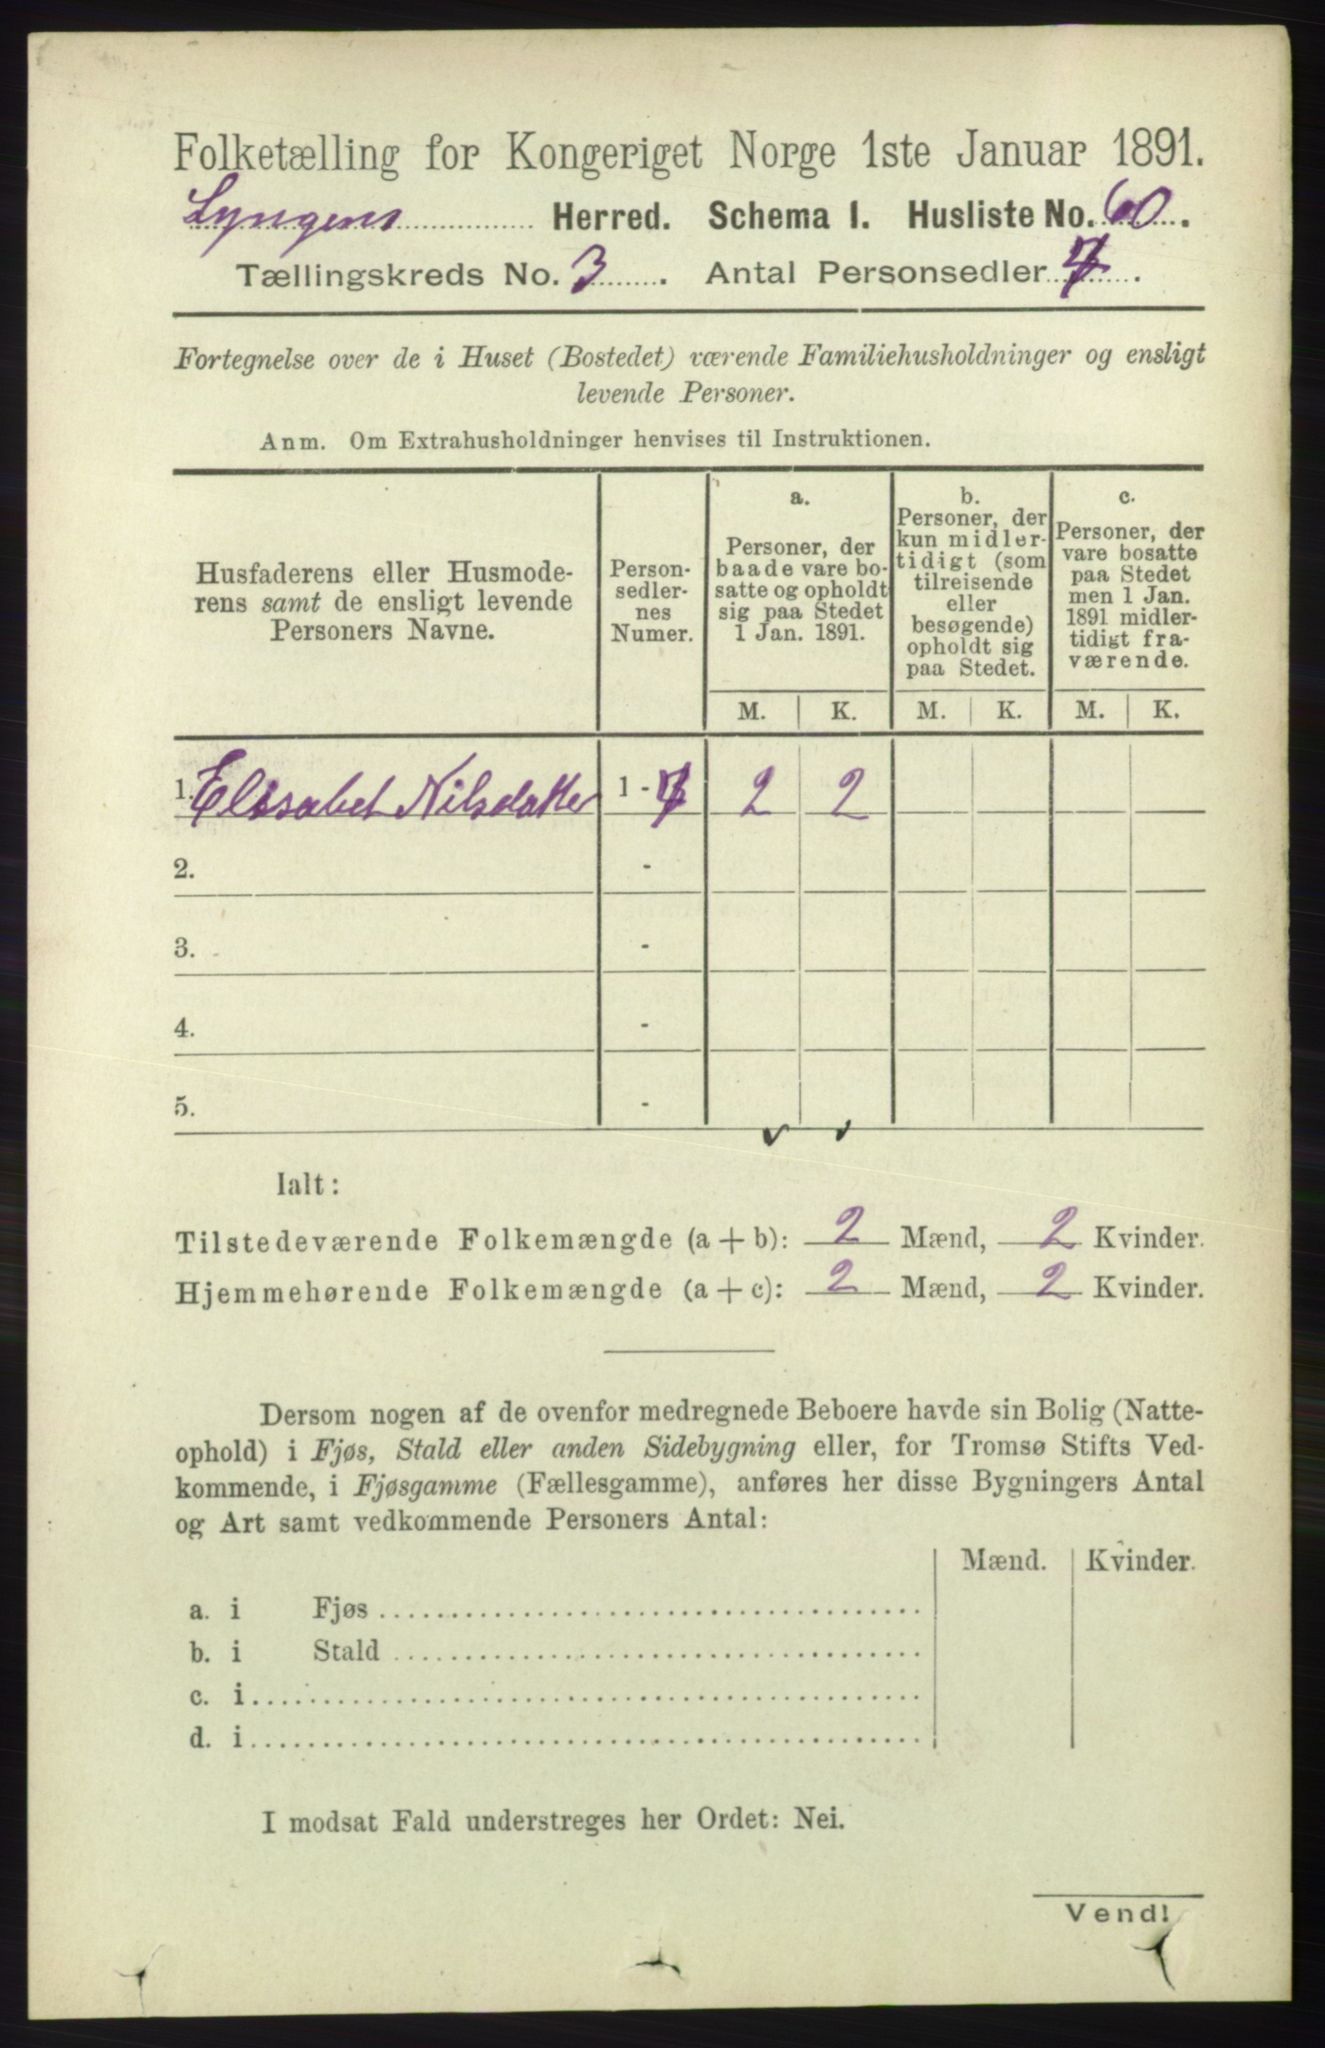 Folketælling for Kongeriget Norge 1ste Januar 1891.
Lyngens Herred. Schema I. Husliste No. 60.
Tællingskreds No. 3. Antal Personsedler 4.
Fortegnelse over de i Huset (Bostedet) værende Familiehusholdninger og ensligt
levende Personer.
Anm. Om Extrahusholdninger henvises til Instruktionen.
Husfaderens eller Husmode-
rens samt de ensligt levende
Personers Navne.
Person-
sedler-
nes
Numer.
a.
Personer, der
baade vare bo-
satte og opholdt
sig paa Stedet
1 Jan. 1891.
b.
Personer, der
kun midler-
tidigt (som
tilreisende
eller
besøgende)
opholdt sig
paa Stedet.
c.
Personer, der
vare bosatte
paa Stedet
men 1 Jan.
1891 midler-
tidigt fra-
værende.
M. K. M. K. M. K.
1. Elisabet Nilsdatter 1 - 4 2 2
2. -
3. -
4. -
5. -
Ialt:
Tilstedeværende Folkemængde (a + b): 2 Mænd, 2 Kvinder.
Hjemmehørende Folkemængde (a + c): 2 Mænd, 2 Kvinder.
Dersom nogen af de ovenfor medregnede Beboere havde sin Bolig (Natte-
ophold) i Fjøs, Stald eller anden Sidebygning eller, for Tromsø Stifts Ved-
kommende, i Fjøsgamme (Fællesgamme), anføres her disse Bygningers Antal
og Art samt vedkommende Personers Antal:
Mænd. Kvinder.
a. i Fjøs
b. i Stald
c. i
d. i
I modsat Fald understreges her Ordet: Nei.
Vend!